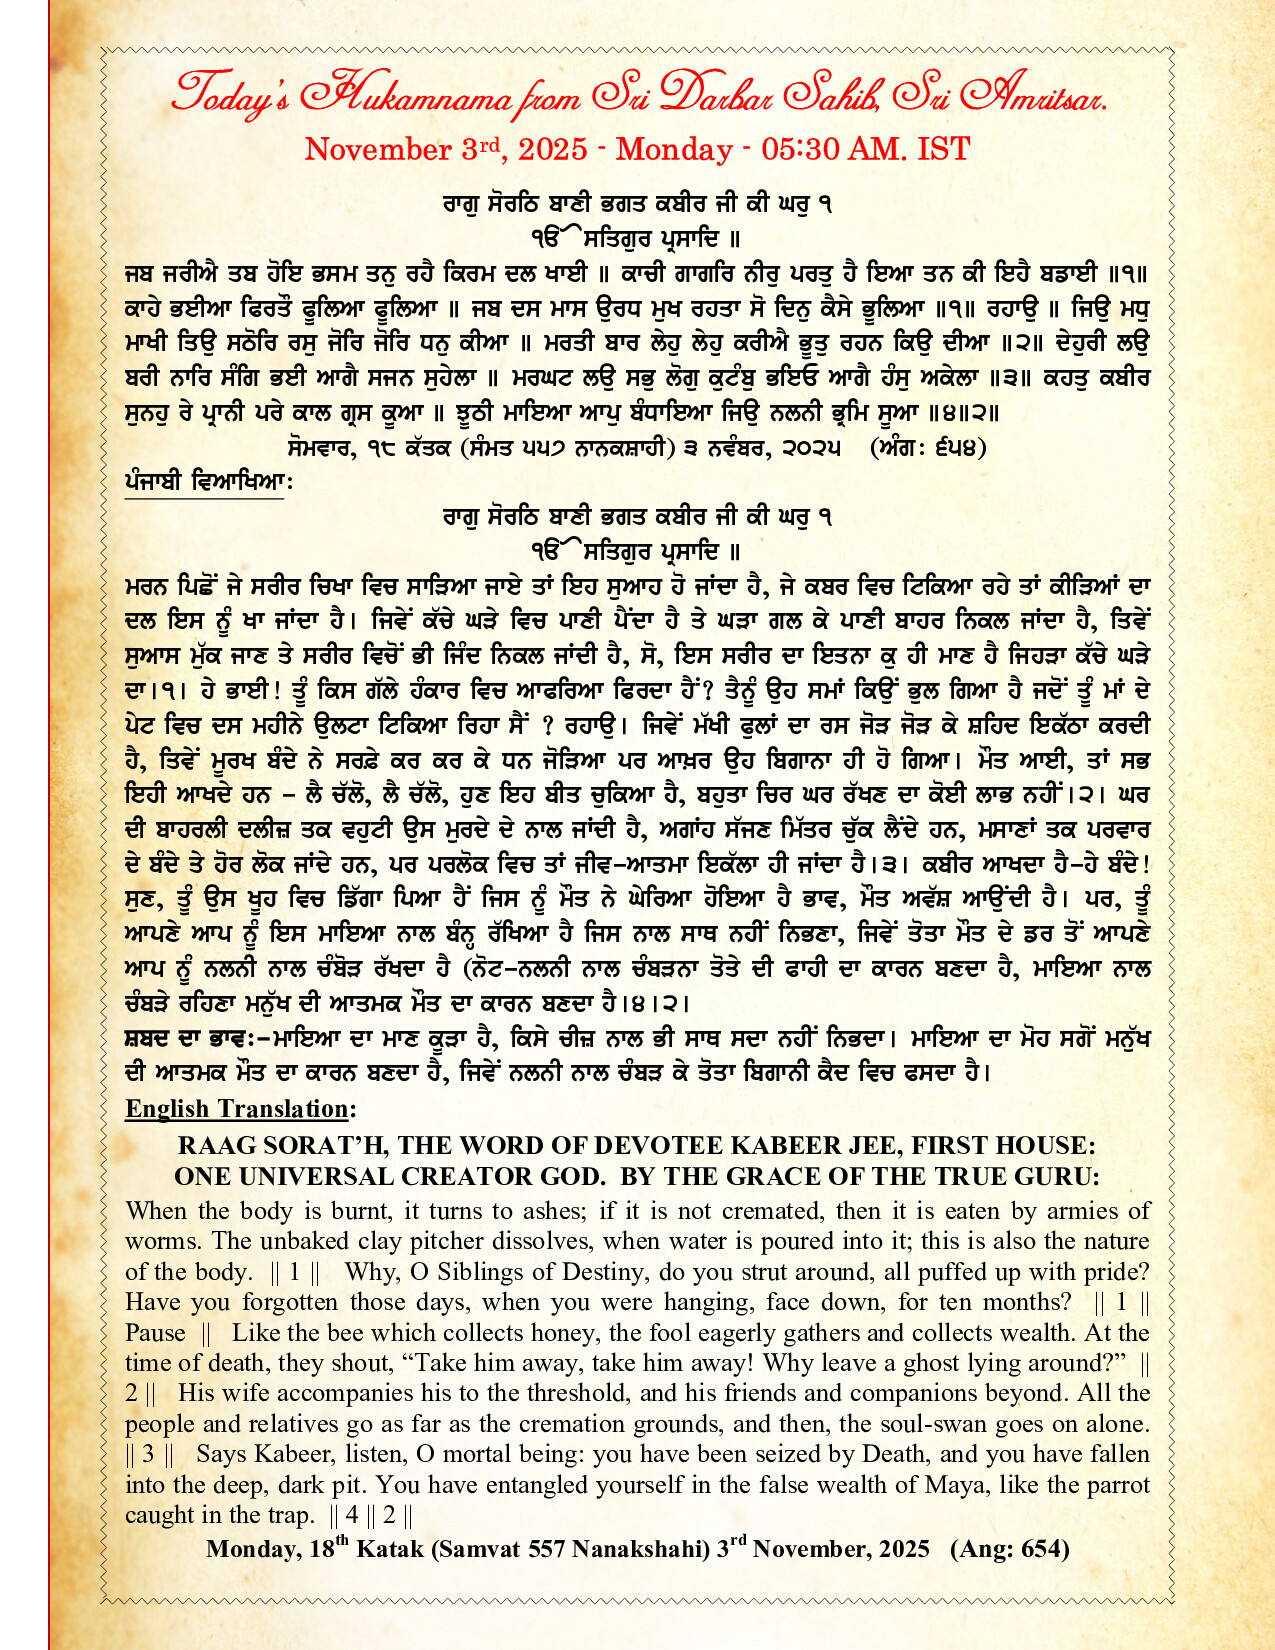 Today's Hukamnama from Sri Darbar Sahib, Sri Amritsar.
November 3rd, 2025 - Monday - 05:30 AM. IST
ਰਾਗੁ ਸੋਰਠਿ ਬਾਣੀ ਭਗਤ ਕਬੀਰ ਜੀ ਕੀ ਘਰੁ ੧
ੴ ਸਤਿਗੁਰ ਪ੍ਰਸਾਦਿ ॥
ਜਬ ਜਰੀਐ ਤਬ ਹੋਇ ਭਸਮ ਤਨੁ ਰਹੈ ਕਿਰਮ ਦਲ ਖਾਈ ॥ ਕਾਚੀ ਗਾਗਰਿ ਨੀਰੁ ਪਰਤੁ ਹੈ ਇਆ ਤਨ ਕੀ ਇਹੈ ਬਡਾਈ ॥੧॥
ਕਾਹੇ ਭਈਆ ਫਿਰਤੌ ਫੂਲਿਆ ਫੂਲਿਆ ॥ ਜਬ ਦਸ ਮਾਸ ਉਰਧ ਮੁਖ ਰਹਤਾ ਸੋ ਦਿਨੁ ਕੈਸੇ ਭੂਲਿਆ ॥੧॥ ਰਹਾਉ ॥ ਜਿਉ ਮਧੁ
ਮਾਖੀ ਤਿਉ ਸਠੋਰਿ ਰਸੁ ਜੋਰਿ ਜੋਰਿ ਧਨੁ ਕੀਆ ॥ ਮਰਤੀ ਬਾਰ ਲੇਹੁ ਲੇਹੁ ਕਰੀਐ ਭੂਤੁ ਰਹਨ ਕਿਉ ਦੀਆ ॥੨॥ ਦੇਹੁਰੀ ਲਉ
ਬਰੀ ਨਾਰਿ ਸੰਗਿ ਭਈ ਆਗੈ ਸਜਨ ਸੁਹੇਲਾ ॥ ਮਰਘਟ ਲਉ ਸਭੁ ਲੋਗੁ ਕੁਟੰਬੁ ਭਇਓ ਆਗੈ ਹੰਸੁ ਅਕੇਲਾ ॥੩॥ ਕਹਤੁ ਕਬੀਰ
ਸੁਨਹੁ ਰੇ ਪ੍ਰਾਨੀ ਪਰੇ ਕਾਲ ਗ੍ਰਸ ਕੂਆ ॥ ਝੂਠੀ ਮਾਇਆ ਆਪੁ ਬੰਧਾਇਆ ਜਿਉ ਨਲਨੀ ਭ੍ਰਮਿ ਸੂਆ ॥੪॥੨॥
ਸੋਮਵਾਰ, ੧੮ ਕੱਤਕ (ਸੰਮਤ ੫੫੭ ਨਾਨਕਸ਼ਾਹੀ) ੩ ਨਵੰਬਰ, ੨੦੨੫ (ਅੰਗ: ੬੫੪)
ਪੰਜਾਬੀ ਵਿਆਖਿਆ:
ਰਾਗੁ ਸੋਰਠਿ ਬਾਣੀ ਭਗਤ ਕਬੀਰ ਜੀ ਕੀ ਘਰੁ ੧
ੴ ਸਤਿਗੁਰ ਪ੍ਰਸਾਦਿ ॥
ਮਰਨ ਪਿਛੋਂ ਜੇ ਸਰੀਰ ਚਿਖਾ ਵਿਚ ਸਾੜਿਆ ਜਾਏ ਤਾਂ ਇਹ ਸੁਆਹ ਹੋ ਜਾਂਦਾ ਹੈ, ਜੇ ਕਬਰ ਵਿਚ ਟਿਕਿਆ ਰਹੇ ਤਾਂ ਕੀੜਿਆਂ ਦਾ
ਦਲ ਇਸ ਨੂੰ ਖਾ ਜਾਂਦਾ ਹੈ। ਜਿਵੇਂ ਕੱਚੇ ਘੜੇ ਵਿਚ ਪਾਣੀ ਪੈਂਦਾ ਹੈ ਤੇ ਘੜਾ ਗਲ ਕੇ ਪਾਣੀ ਬਾਹਰ ਨਿਕਲ ਜਾਂਦਾ ਹੈ, ਤਿਵੇਂ
ਸੁਆਸ ਮੁੱਕ ਜਾਣ ਤੇ ਸਰੀਰ ਵਿਚੋਂ ਭੀ ਜਿੰਦ ਨਿਕਲ ਜਾਂਦੀ ਹੈ, ਸੋ, ਇਸ ਸਰੀਰ ਦਾ ਇਤਨਾ ਕੁ ਹੀ ਮਾਣ ਹੈ ਜਿਹੜਾ ਕੱਚੇ ਘੜੇ
ਦਾ।੧। ਹੇ ਭਾਈ! ਤੂੰ ਕਿਸ ਗੱਲੇ ਹੰਕਾਰ ਵਿਚ ਆਫਰਿਆ ਫਿਰਦਾ ਹੈਂ? ਤੈਨੂੰ ਉਹ ਸਮਾਂ ਕਿਉਂ ਭੁਲ ਗਿਆ ਹੈ ਜਦੋਂ ਤੂੰ ਮਾਂ ਦੇ
ਪੇਟ ਵਿਚ ਦਸ ਮਹੀਨੇ ਉਲਟਾ ਟਿਕਿਆ ਰਿਹਾ ਸੈਂ ? ਰਹਾਉ। ਜਿਵੇਂ ਮੱਖੀ ਫੁਲਾਂ ਦਾ ਰਸ ਜੋੜ ਜੋੜ ਕੇ ਸ਼ਹਿਦ ਇਕੱਠਾ ਕਰਦੀ
ਹੈ, ਤਿਵੇਂ ਮੂਰਖ ਬੰਦੇ ਨੇ ਸਰਫ਼ੇ ਕਰ ਕਰ ਕੇ ਧਨ ਜੋੜਿਆ ਪਰ ਆਖ਼ਰ ਉਹ ਬਿਗਾਨਾ ਹੀ ਹੋ ਗਿਆ। ਮੌਤ ਆਈ, ਤਾਂ ਸਭ
ਇਹੀ ਆਖਦੇ ਹਨ – ਲੈ ਚੱਲੋ, ਲੈ ਚੱਲੋ, ਹੁਣ ਇਹ ਬੀਤ ਚੁਕਿਆ ਹੈ, ਬਹੁਤਾ ਚਿਰ ਘਰ ਰੱਖਣ ਦਾ ਕੋਈ ਲਾਭ ਨਹੀਂ।੨। ਘਰ
ਦੀ ਬਾਹਰਲੀ ਦਲੀਜ਼ ਤਕ ਵਹੁਟੀ ਉਸ ਮੁਰਦੇ ਦੇ ਨਾਲ ਜਾਂਦੀ ਹੈ, ਅਗਾਂਹ ਸੱਜਣ ਮਿੱਤਰ ਚੁੱਕ ਲੈਂਦੇ ਹਨ, ਮਸਾਣਾਂ ਤਕ ਪਰਵਾਰ
ਦੇ ਬੰਦੇ ਤੇ ਹੋਰ ਲੋਕ ਜਾਂਦੇ ਹਨ, ਪਰ ਪਰਲੋਕ ਵਿਚ ਤਾਂ ਜੀਵ-ਆਤਮਾ ਇਕੱਲਾ ਹੀ ਜਾਂਦਾ ਹੈ।੩। ਕਬੀਰ ਆਖਦਾ ਹੈ-ਹੇ ਬੰਦੇ!
ਸੁਣ, ਤੂੰ ਉਸ ਖੂਹ ਵਿਚ ਡਿੱਗਾ ਪਿਆ ਹੈਂ ਜਿਸ ਨੂੰ ਮੌਤ ਨੇ ਘੇਰਿਆ ਹੋਇਆ ਹੈ ਭਾਵ, ਮੌਤ ਅਵੱਸ਼ ਆਉਂਦੀ ਹੈ। ਪਰ, ਤੂੰ
ਆਪਣੇ ਆਪ ਨੂੰ ਇਸ ਮਾਇਆ ਨਾਲ ਬੰਨ੍ਹ ਰੱਖਿਆ ਹੈ ਜਿਸ ਨਾਲ ਸਾਥ ਨਹੀਂ ਨਿਭਣਾ, ਜਿਵੇਂ ਤੋਤਾ ਮੌਤ ਦੇ ਡਰ ਤੋਂ ਆਪਣੇ
ਆਪ ਨੂੰ ਨਲਨੀ ਨਾਲ ਚੰਬੋੜ ਰੱਖਦਾ ਹੈ (ਨੋਟ-ਨਲਨੀ ਨਾਲ ਚੰਬੜਨਾ ਤੋਤੇ ਦੀ ਫਾਹੀ ਦਾ ਕਾਰਨ ਬਣਦਾ ਹੈ, ਮਾਇਆ ਨਾਲ
ਚੰਬੜੇ ਰਹਿਣਾ ਮਨੁੱਖ ਦੀ ਆਤਮਕ ਮੌਤ ਦਾ ਕਾਰਨ ਬਣਦਾ ਹੈ।੪।੨।
ਸ਼ਬਦ ਦਾ ਭਾਵ:-ਮਾਇਆ ਦਾ ਮਾਣ ਕੂੜਾ ਹੈ, ਕਿਸੇ ਚੀਜ਼ ਨਾਲ ਭੀ ਸਾਥ ਸਦਾ ਨਹੀਂ ਨਿਭਦਾ। ਮਾਇਆ ਦਾ ਮੋਹ ਸਗੋਂ ਮਨੁੱਖ
ਦੀ ਆਤਮਕ ਮੌਤ ਦਾ ਕਾਰਨ ਬਣਦਾ ਹੈ, ਜਿਵੇਂ ਨਲਨੀ ਨਾਲ ਚੰਬੜ ਕੇ ਤੋਤਾ ਬਿਗਾਨੀ ਕੈਦ ਵਿਚ ਫਸਦਾ ਹੈ।
English Translation:
RAAG SORAT'H, THE WORD OF DEVOTEE KABEER JEE, FIRST HOUSE:
ONE UNIVERSAL CREATOR GOD. BY THE GRACE OF THE TRUE GURU:
When the body is burnt, it turns to ashes; if it is not cremated, then it is eaten by armies of
worms. The unbaked clay pitcher dissolves, when water is poured into it; this is also the nature
of the body. || 1 || Why, O Siblings of Destiny, do you strut around, all puffed up with pride?
Have you forgotten those days, when you were hanging, face down, for ten months? || 1 ||
Pause || Like the bee which collects honey, the fool eagerly gathers and collects wealth. At the
time of death, they shout, “Take him away, take him away! Why leave a ghost lying around?” ||
2 || His wife accompanies his to the threshold, and his friends and companions beyond. All the
people and relatives go as far as the cremation grounds, and then, the soul-swan goes on alone.
|| 3 || Says Kabeer, listen, O mortal being: you have been seized by Death, and you have fallen
into the deep, dark pit. You have entangled yourself in the false wealth of Maya, like the parrot
caught in the trap. || 4 || 2 ||
Monday, 18th Katak (Samvat 557 Nanakshahi) 3rd November, 2025 (Ang: 654)